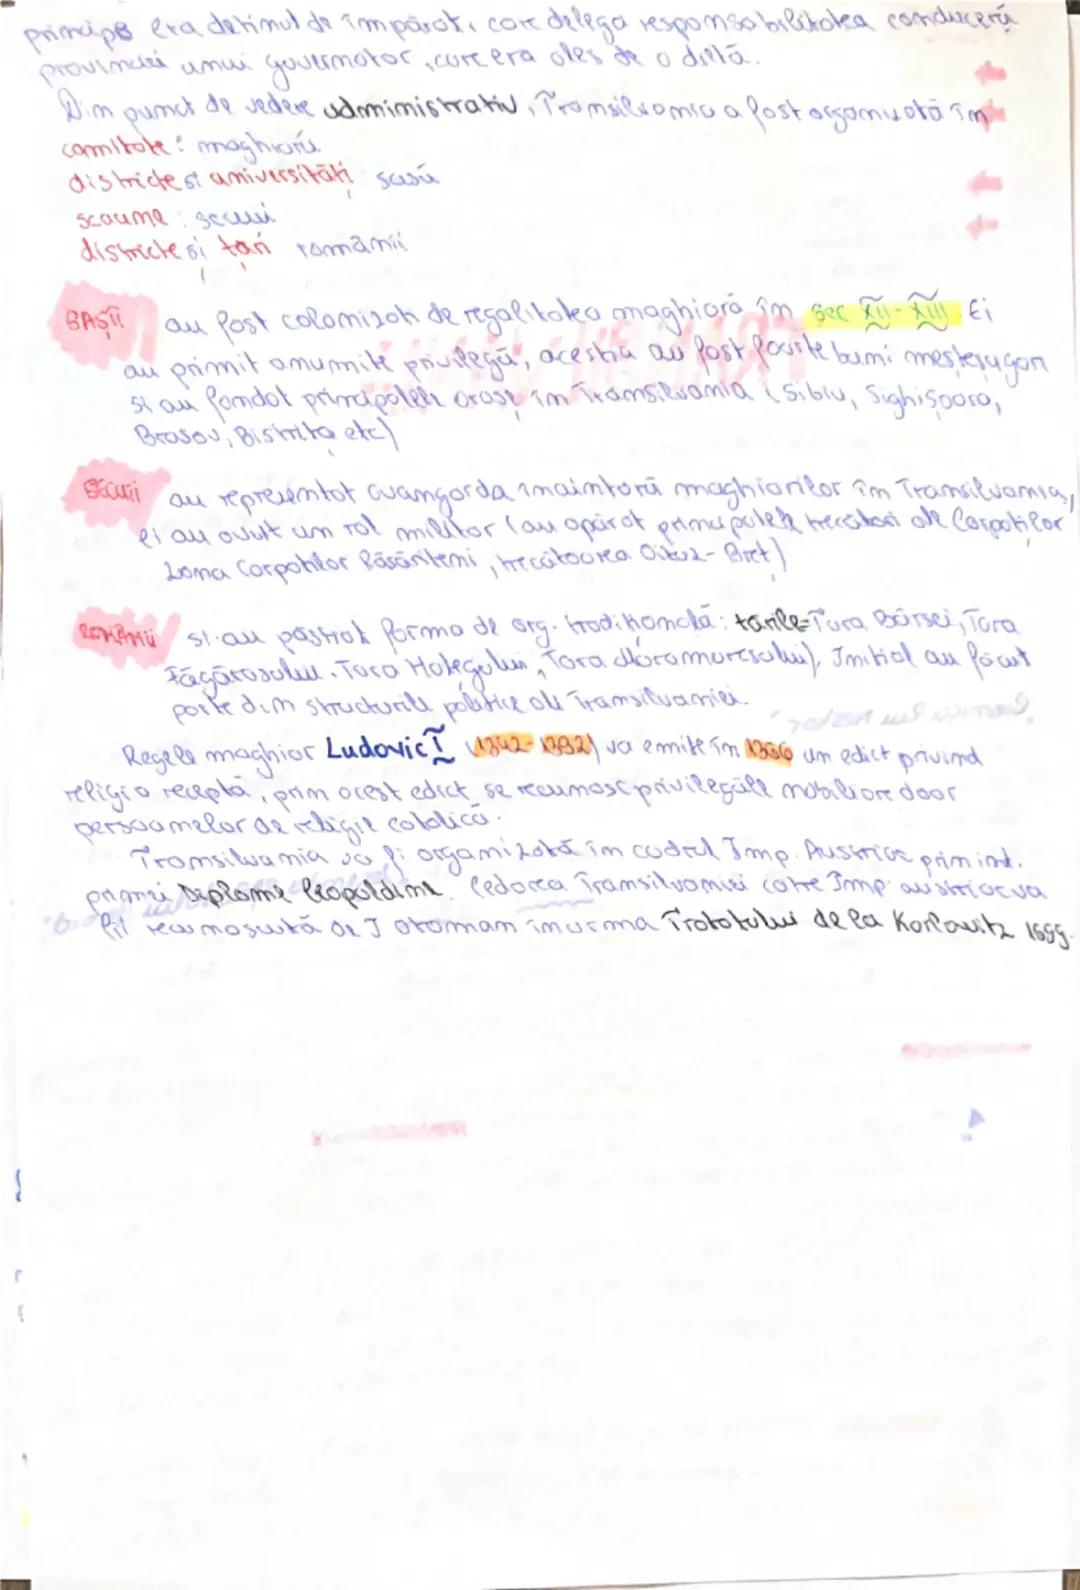 principe era detinut de împărat, care delega responsabilitatea conducerii
provinciei unui guvernator, care era ales de o dietă.
Din punct de vedere administrativ, Transilvania a fost organizată în
comitate: maghiarii
districte si universităti sasii
scaune: secuii
districte si țări românii
SAȘII au fost colonizati de regalitatea maghiară în sec XII-XIII. Ei
au primit anumite privilegii, acestia au fost foarte buni mesteșugari
si au fondat principalele orase în Transilvania (Sibiu, Sighișoara,
Brasov, Bistrița etc)
SECUII au reprezentat avangarda inaintării maghiarilor în Transilvania,
ei au avut un rol militar (au apărat principalele trecători ale Carpaților
zona Carpatilor Răsăriteni, trecătoarea Oituz-Bret)
ROMÂNII si-au păstrat forma de org. traditională: tarile-Tara Bârsei, Tara
Făgărasului, Tara Hategului, Tara Maramuresului). Initial au făcut
parte din structurile politice ale Transilvaniei.
Regele maghiar Ludovic I (1342-1382) va emite în 1366 un edict privind
religia receptă, prin acest edict se recunosc privilegiile nobiliare doar
persoanelor de religie catolică.
Transilvania va fi organizată în cadrul Imp. Austriac prin int.
primei Diplome Leopoldine. Cedarea Transilvaniei catre Imp. austriac va
fi recunoscută de I otoman în urma Tratatului de la Karlowitz 1699.